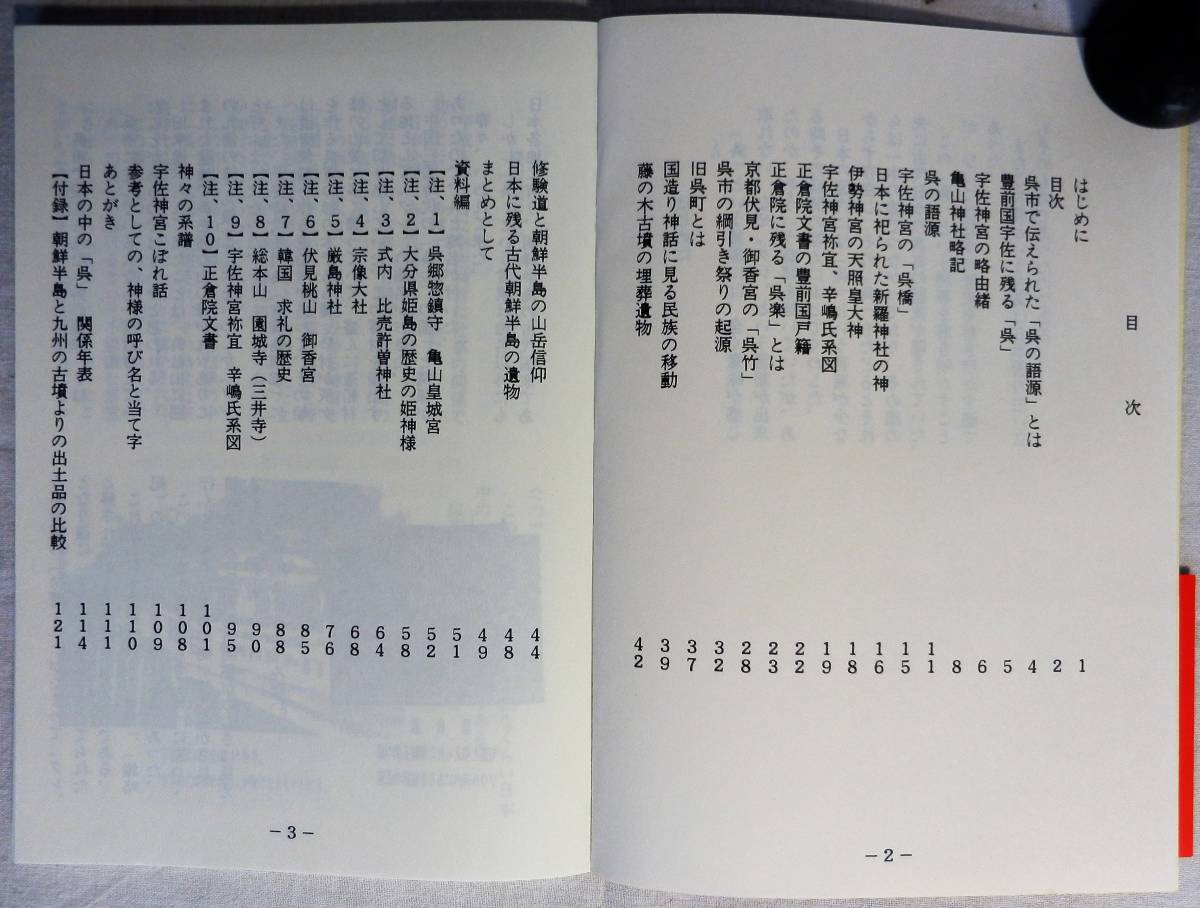 目次
はじめに 1
目次 2
呉市で伝えられた「呉の語源」とは 4
豊前国宇佐に残る「呉」 5
宇佐神宮の略由緒 6
亀山神社略記 8
呉の語源 11
宇佐神宮の「呉橋」 15
日本に祀られた新羅神社の神 16
伊勢神宮の天照皇大神 18
宇佐神宮祢宜、辛嶋氏系図 19
正倉院文書の豊前国戸籍 22
正倉院に残る「呉楽」とは 23
京都伏見・御香宮の「呉竹」 28
呉市の綱引き祭りの起源 32
旧呉町とは 37
国造り神話に見る民族の移動 39
藤の木古墳の埋葬遺物 42
－2－
修験道と朝鮮半島の山岳信仰 44
日本に残る古代朝鮮半島の遺物 48
まとめとして 49
資料編 51
【注、1】呉郷惣鎮守 亀山皇城宮 52
【注、2】大分県姫島の歴史の姫神様 58
【注、3】式内 比売許曽神社 64
【注、4】宗像大社 68
【注、5】厳島神社 76
【注、6】伏見桃山 御香宮 85
【注、7】韓国 求礼の歴史 88
【注、8】総本山 園城寺(三井寺) 90
【注、9】宇佐神宮祢宜 辛嶋氏系図 95
【注、10】正倉院文書 101
神々の系譜 108
宇佐神宮こぼれ話 109
参考としての、神様の呼び名と当て字 110
あとがき 111
日本の中の「呉」 関係年表 114
【付録】朝鮮半島と九州の古墳よりの出土品の比較 121
－3－